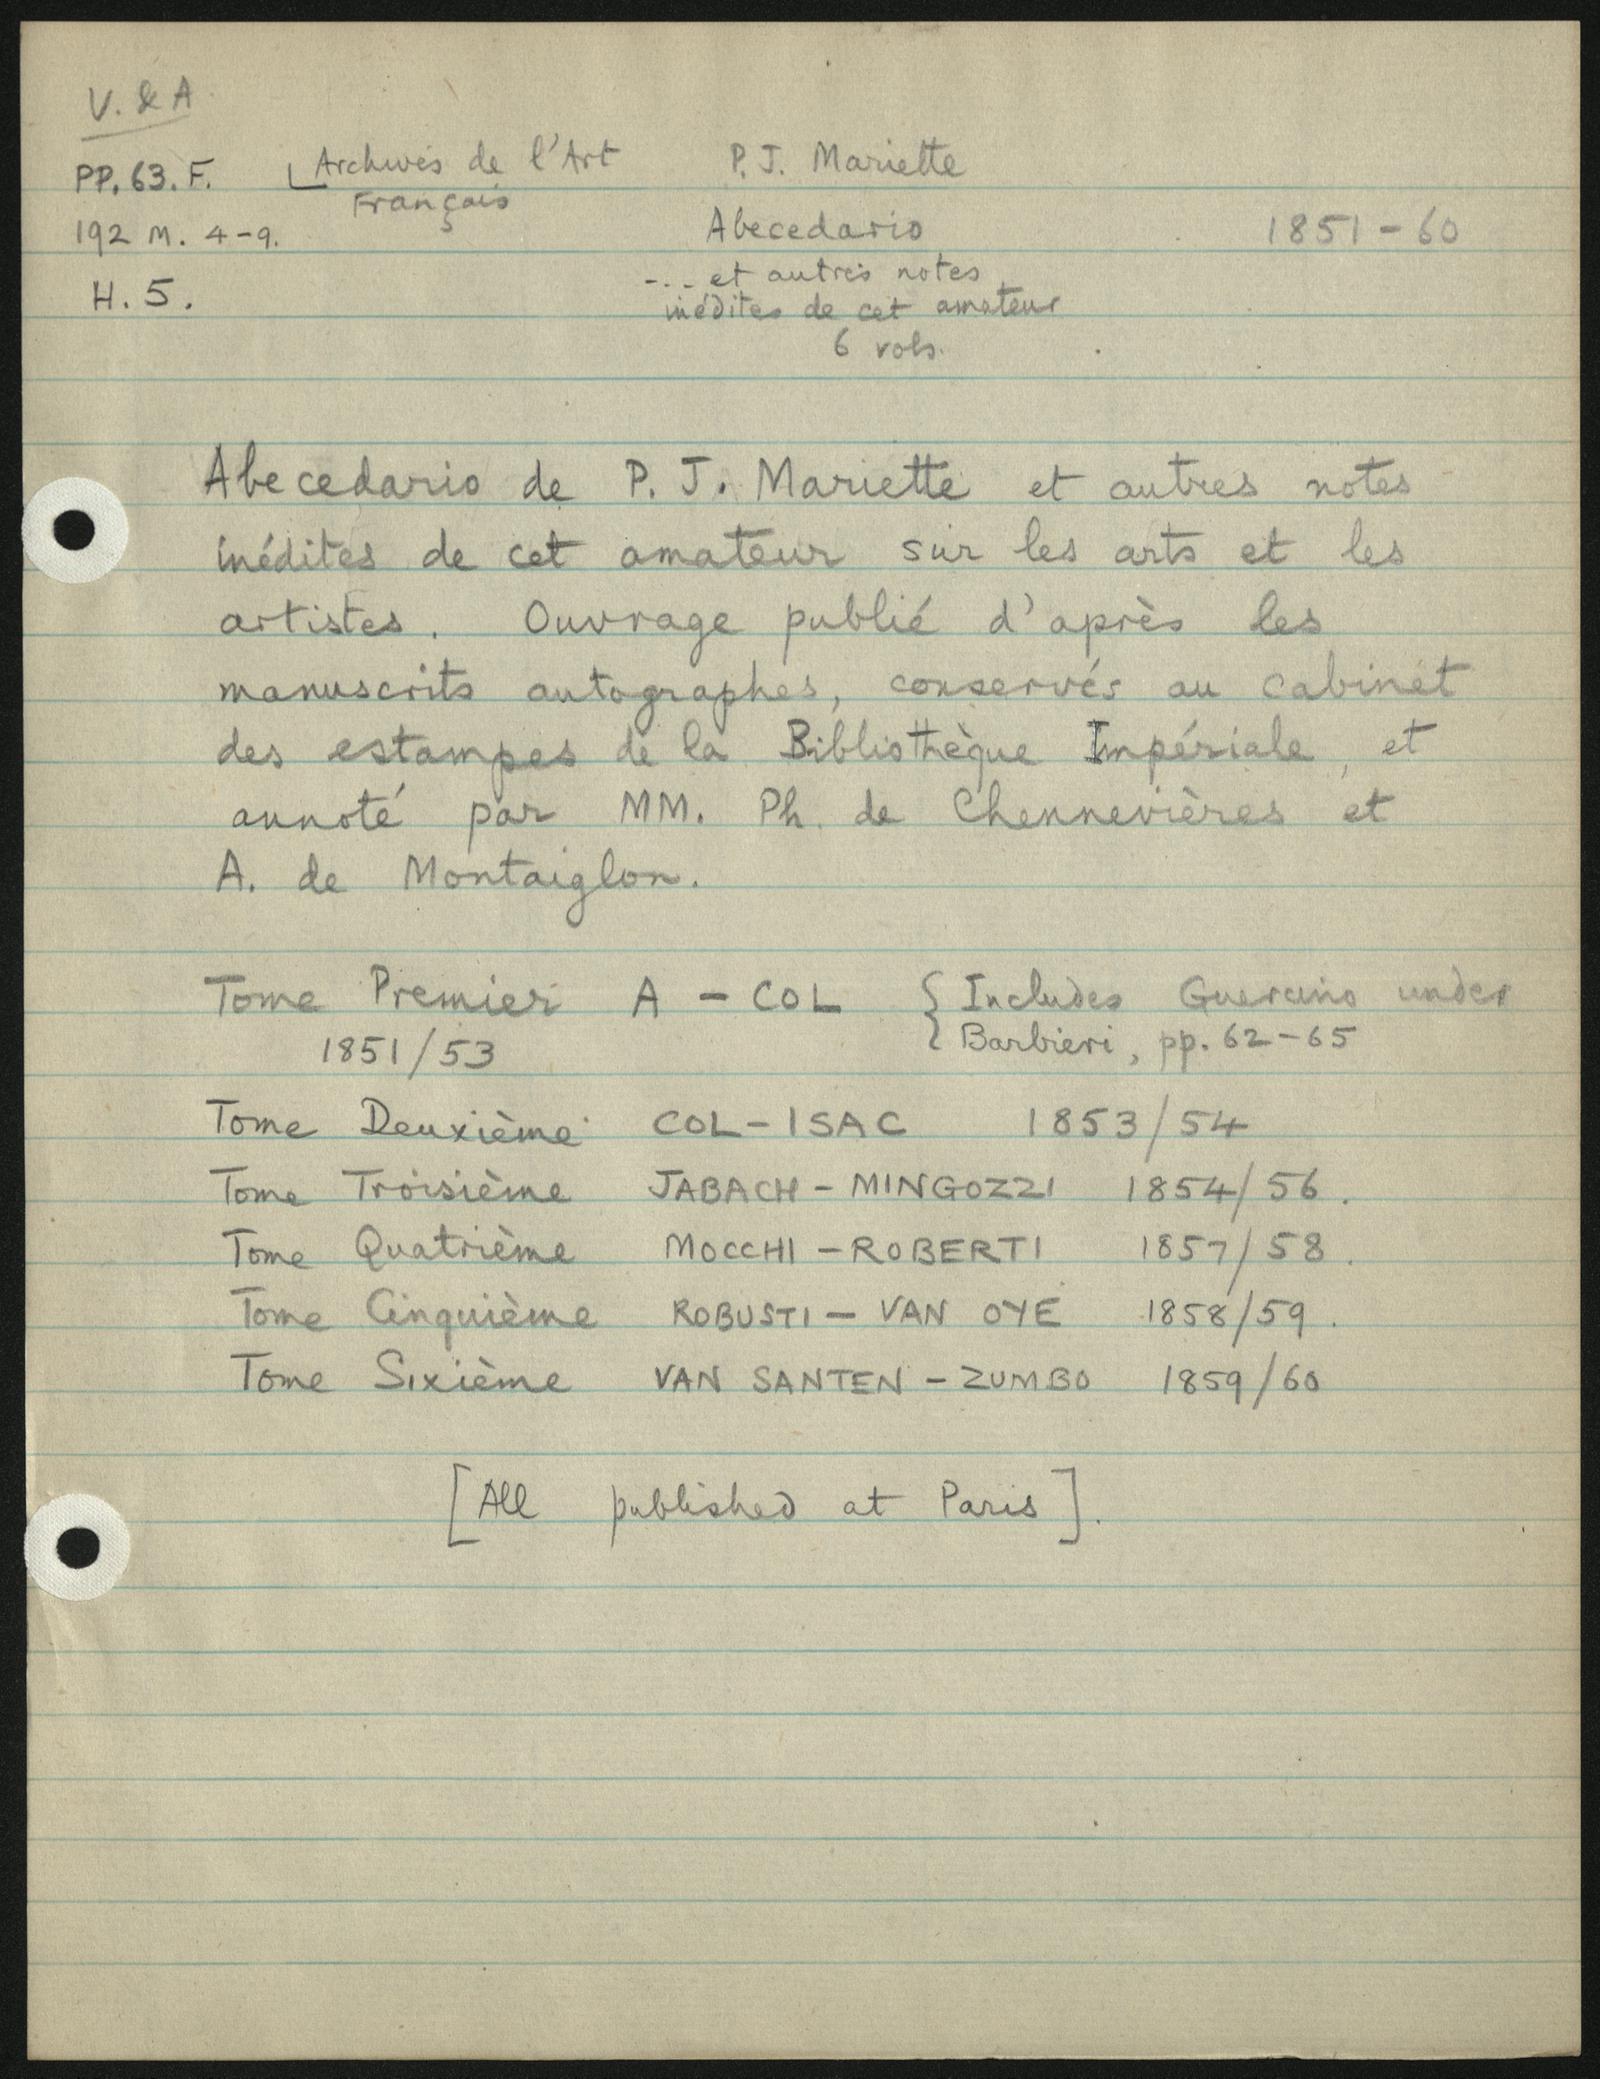 V. & A
PP. 63. F. Archives de l'Art P. J. Mariette
Français
192 M. 4-9. Abecedario 1851-60
H. 5. --.. et autres notes
inédites de cet amateur
6 vols.
Abecedario de P. J. Mariette et autres notes
inédites de cet amateur sur les arts et les
artistes. Ouvrage publié d'après les
manuscrits autographes, conservés au cabinet
des estampes de la Bibliothèque Impériale, et
annoté par MM. Ph. de Chennevières et
A. de Montaiglon.
Tome Premier A - COL { Includes Guercino under
1851/53 Barbieri, pp. 62-65
Tome Deuxième COL - ISAC 1853/54
Tome Troisième JABACH - MINGOZZI 1854/56.
Tome Quatrième MOCCHI - ROBERTI 1857/58.
Tome Cinquième ROBUSTI - VAN OYE 1858/59.
Tome Sixième VAN SANTEN - ZUMBO 1859/60
[All published at Paris].